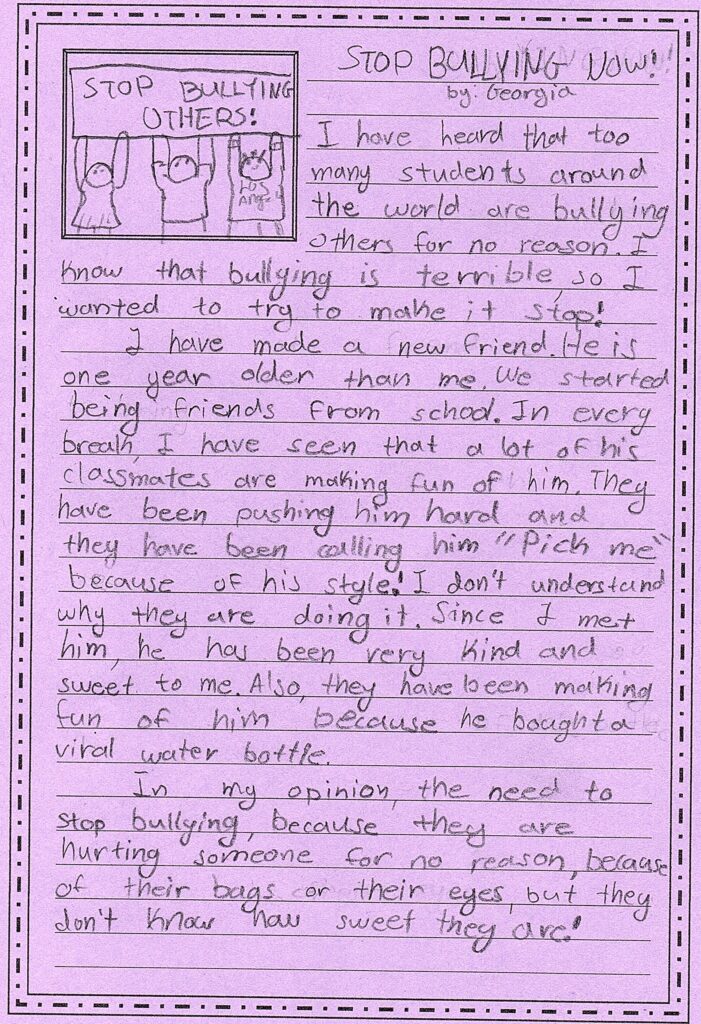 STOP BULLYING NOW!
by: Georgia
STOP BULLYING
OTHERS!
LOS
Angel
I have heard that too
many students around
the world are bullying
others for no reason. I
know that bullying is terrible, so I
wanted to try to make it stop!
I have made a new friend. He is
one year older than me. We started
being friends from school. In every
break, I have seen that a lot of his
classmates are making fun of him. They
have been pushing him hard and
they have been calling him "Pick me"
because of his style! I don't understand
why they are doing it. Since I met
him, he has been very kind and
sweet to me. Also, they have been making
fun of him because he bought a
viral water bottle.
In my opinion, the need to
stop bullying, because they are
hurting someone for no reason, because
of their bags or their eyes, but they
don't know how sweet they are!